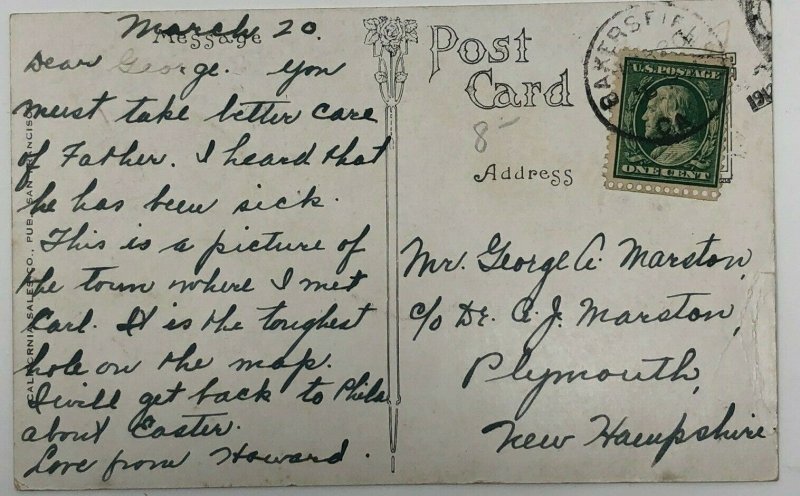 March 20.
Message
Dear George. You
must take better care
of Father. I heard that
he has been sick.
This is a picture of
the town where I met
Carl. It is the toughest
hole on the map.
I will get back to Phila
about Easter.
Love from Howard.
CALIFORNIA SALES CO., PUB. SAN FRANCISCO
Post
Card
8-
Address
BAKERSFIELD
CAL
191
U.S. POSTAGE
ONE CENT
Mr. George A. Marston,
c/o Dr. A. J. Marston,
Plymouth,
New Hampshire.